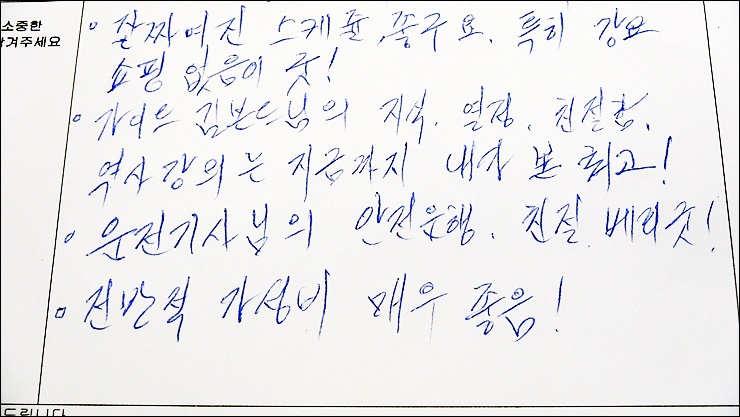 소중한
겨주세요
• 잘짜여진 스케쥴, 좋구요. 특히 강요
쇼핑 없음이 굿!
• 가이드 김본드님의 지식, 열정, 친절함,
역사강의는 지금까지 내가 본 최고!
• 운전기사님의 안전운행, 친절 베리굿!
▫ 전반적 가성비 매우 좋음!
드립니다